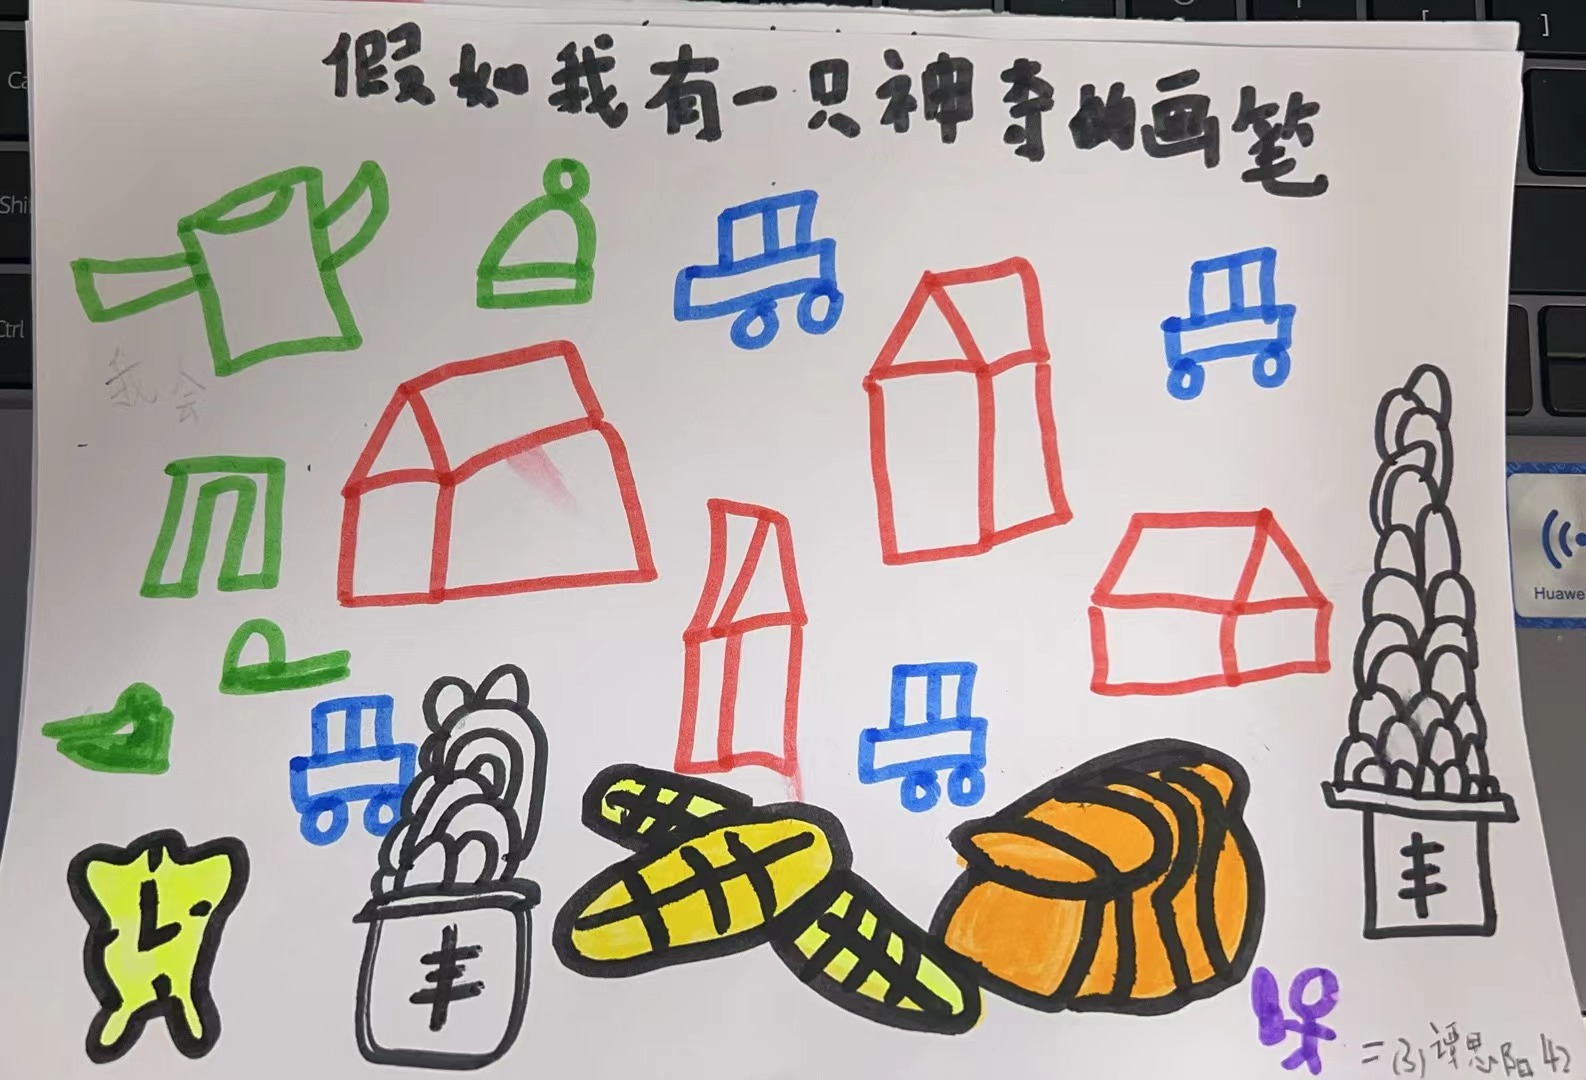 假如我有一只神奇的画笔
我会
丰
丰
二(3)谭思阳42
Ca
Shi
Ctrl
[
]
Huawe